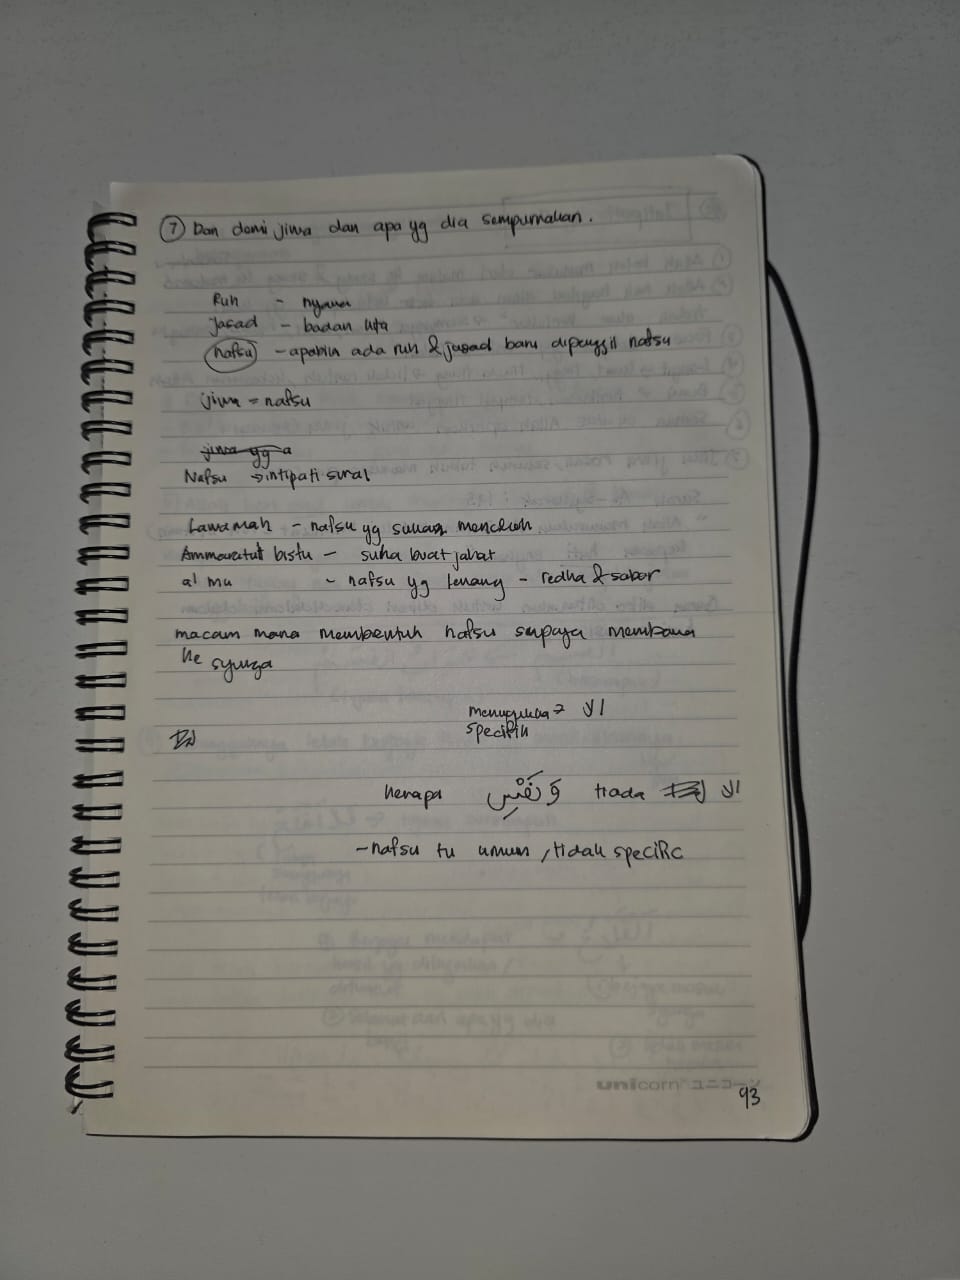 ⑦ Dan demi jiwa dan apa yg dia sempurnakan.
Ruh - nyawa
Jasad - badan kita
nafsu - apabila ada ruh & jasad baru dipanggil nafsu
jiwa = nafsu
jiwa yg a
Nafsu → intipati surah
Lawamah - nafsu yg suka menceluh
Ammaratut bissu - suka buat jahat
al mu - nafsu yg tenang - redha & sabar
macam mana membentuk nafsu supaya membawa
ke syurga
menunjukkan → ال
specifik
kenapa وَنَفْسٍ tiada ال
- nafsu tu umum, tidak specific
unicorn ユニコーン
93